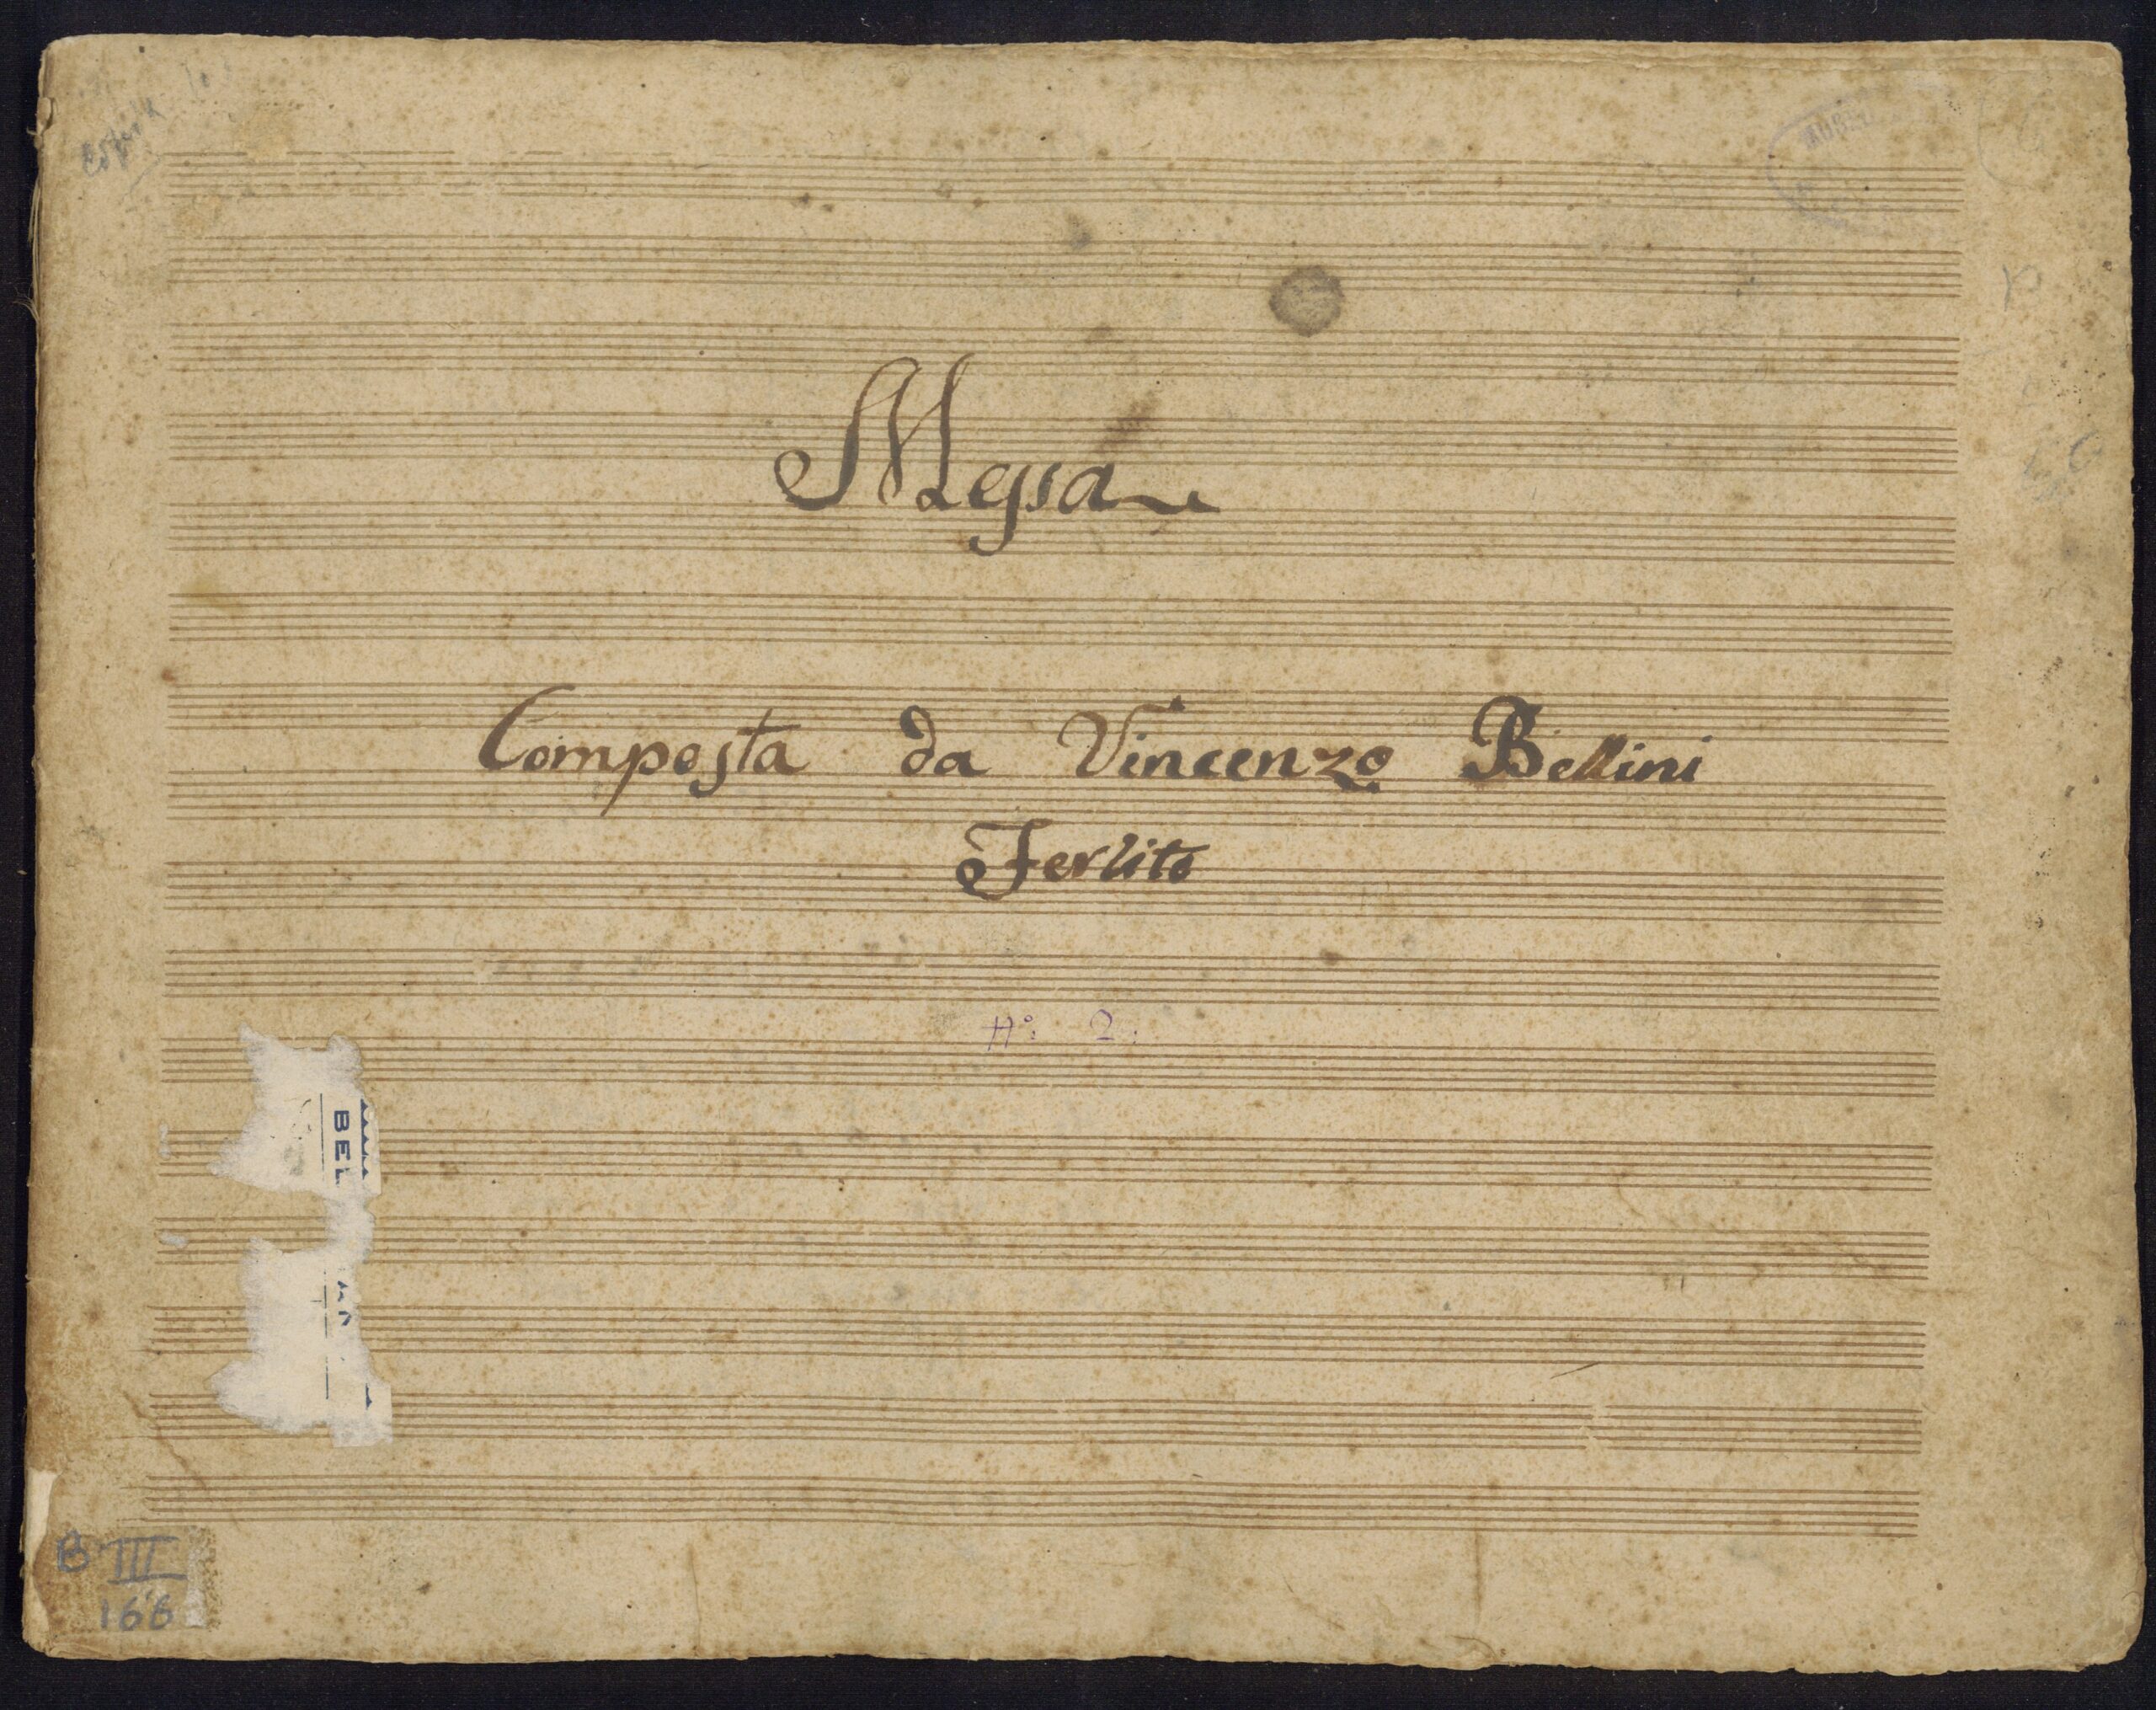 Messa
Composta da Vincenzo Bellini
Ferlito
N°: 2:
BEL
B III
166